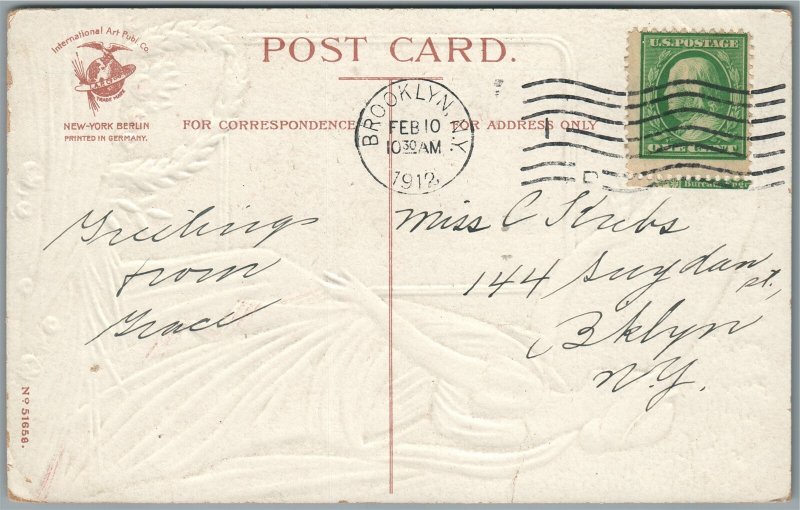 International Art Publ. Co.
TRADE MARK
NEW-YORK BERLIN
PRINTED IN GERMANY.
POST CARD.
FOR CORRESPONDENCE
FOR ADDRESS ONLY
BROOKLYN, N.Y.
FEB 10
10 30 AM
1912
U.S. POSTAGE
ONE CENT
Bureau
Greetings
from
Grace
Miss C Krebs
144 Suydam st.,
Bklyn
N.Y.
No 51656.